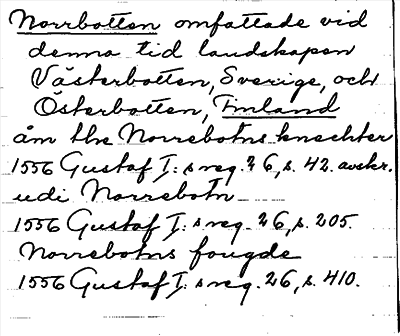 Norrbotten omfattade vid
denna tid landskapen
Västerbotten, Sverige, och
Österbotten, Finland
åm the Norrebotns knechter
1556 Gustaf I:s reg. 26, s. 42. avskr.
udi Norrebotn
1556 Gustaf I:s reg. 26, s. 205.
Norrebotns fougde
1556 Gustaf I:s reg. 26, s. 410.